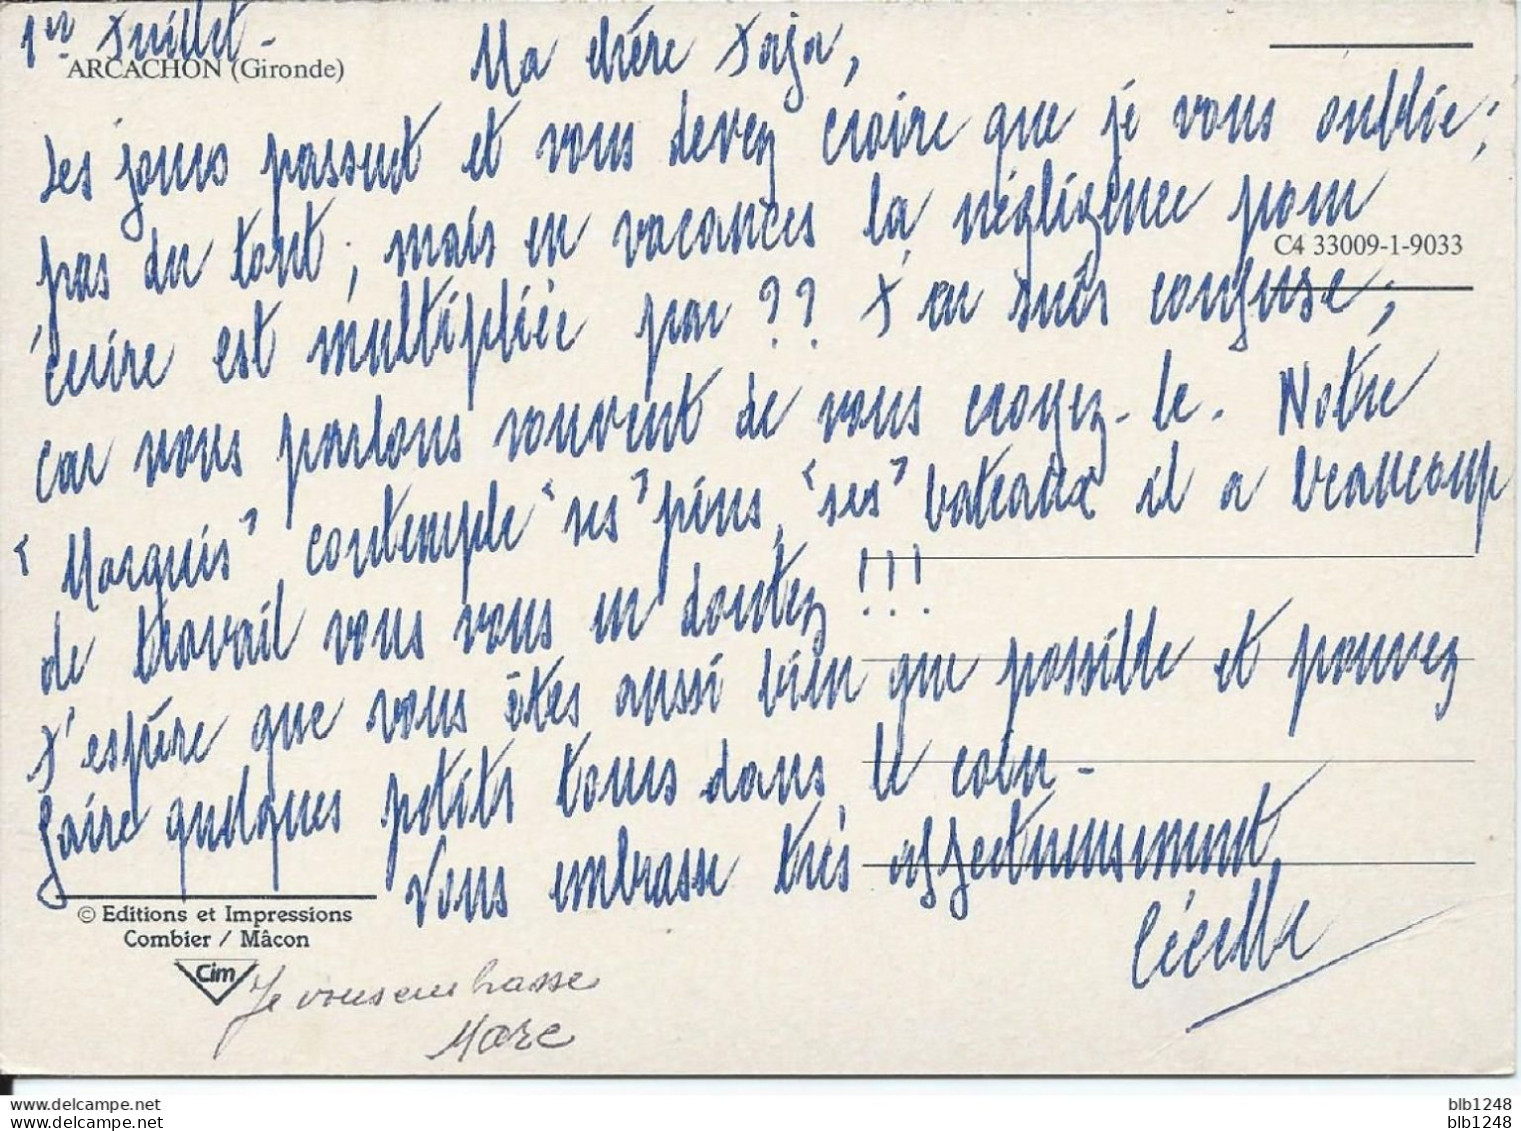 1er Juillet -
ARCACHON (Gironde)
Ma chère Jaja,
Les jours passent et vous devez croire que je vous oublie ;
pas du tout ; mais en vacances la négligence pour
C4 33009-1-9033
écrire est multipliée par ?? J'en suis confuse ;
car nous parlons souvent de vous croyez-le. Notre
"Marquis" contemple "ses" pins, "ses" bateaux il a beaucoup
de travail vous vous en doutez !!!
J'espère que vous êtes aussi bien que possible et pouvez
faire quelques petits tours dans le coin -
Vous embrasse très affectueusement,
Cécelle
© Editions et Impressions
Combier / Mâcon
Cim
Je vous embrasse
Marc
blb1248
blb1248
www.delcampe.net
www.delcampe.net